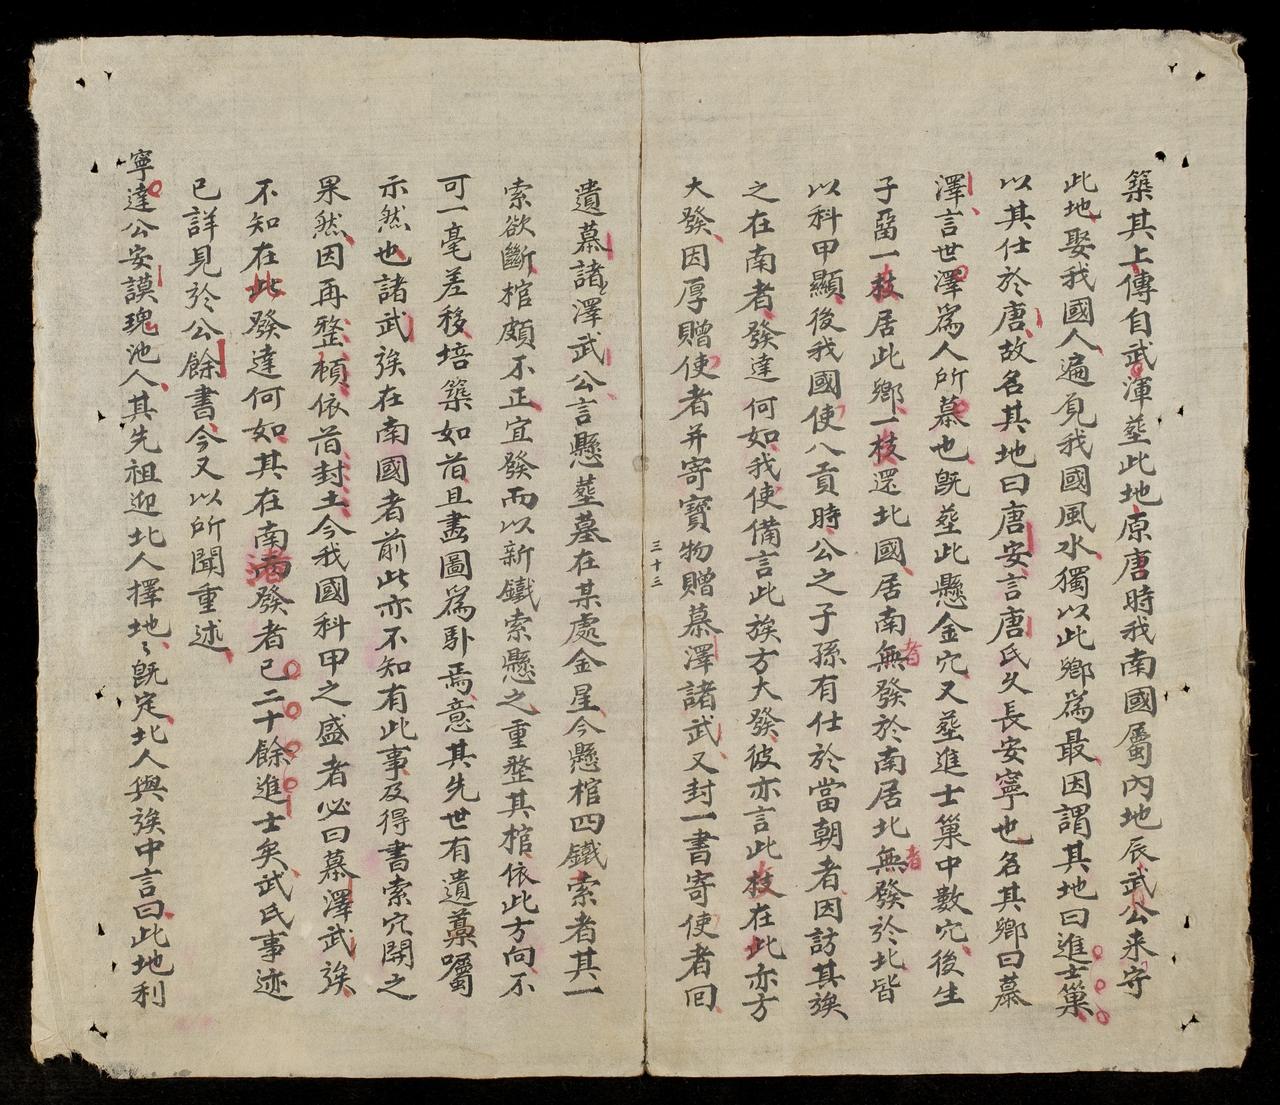 築其上傳自武渾塟此地原唐時我南國屬內地辰武公来守
此地娶我國人遍覓我國風水獨以此鄉爲最因謂其地曰進士巢
以其仕於唐故名其地曰唐安言唐氏久長安寧也名其鄉曰慕
澤言世澤爲人所慕也既塟此懸金穴又塟進士巢中數穴後生
子畱一枝居此鄉一枝還北國居南者無發於南居北者無發於北皆
以科甲顯後我國使入貢時公之子孫有仕於當朝者因訪其族
之在南者發達何如我使備言此族方大發彼亦言此枝在此亦方
大發因厚贈使者并寄寶物贈慕澤諸武又封一書寄使者囘
三十三
遺慕諸澤武公言懸塟墓在某處金星今懸棺四鐵索者其一
索欲斷棺頗不正宜發而以新鐵索懸之重整其棺依此方向不
可一毫差移培築如首且畫圖爲卧焉意其先世有遺藁囑
示然也諸武族在南國者前此亦不知有此事及得書索穴開之
果然因再整頓依首封土今我國科甲之盛者必曰慕澤武族
不知在此發達何如其在南而發者已二十餘進士矣武氏事迹
已詳見於公餘書今又以所聞重述
寧達公安謨瑰池人其先祖迎北人擇地〻既定北人與族中言曰此地利